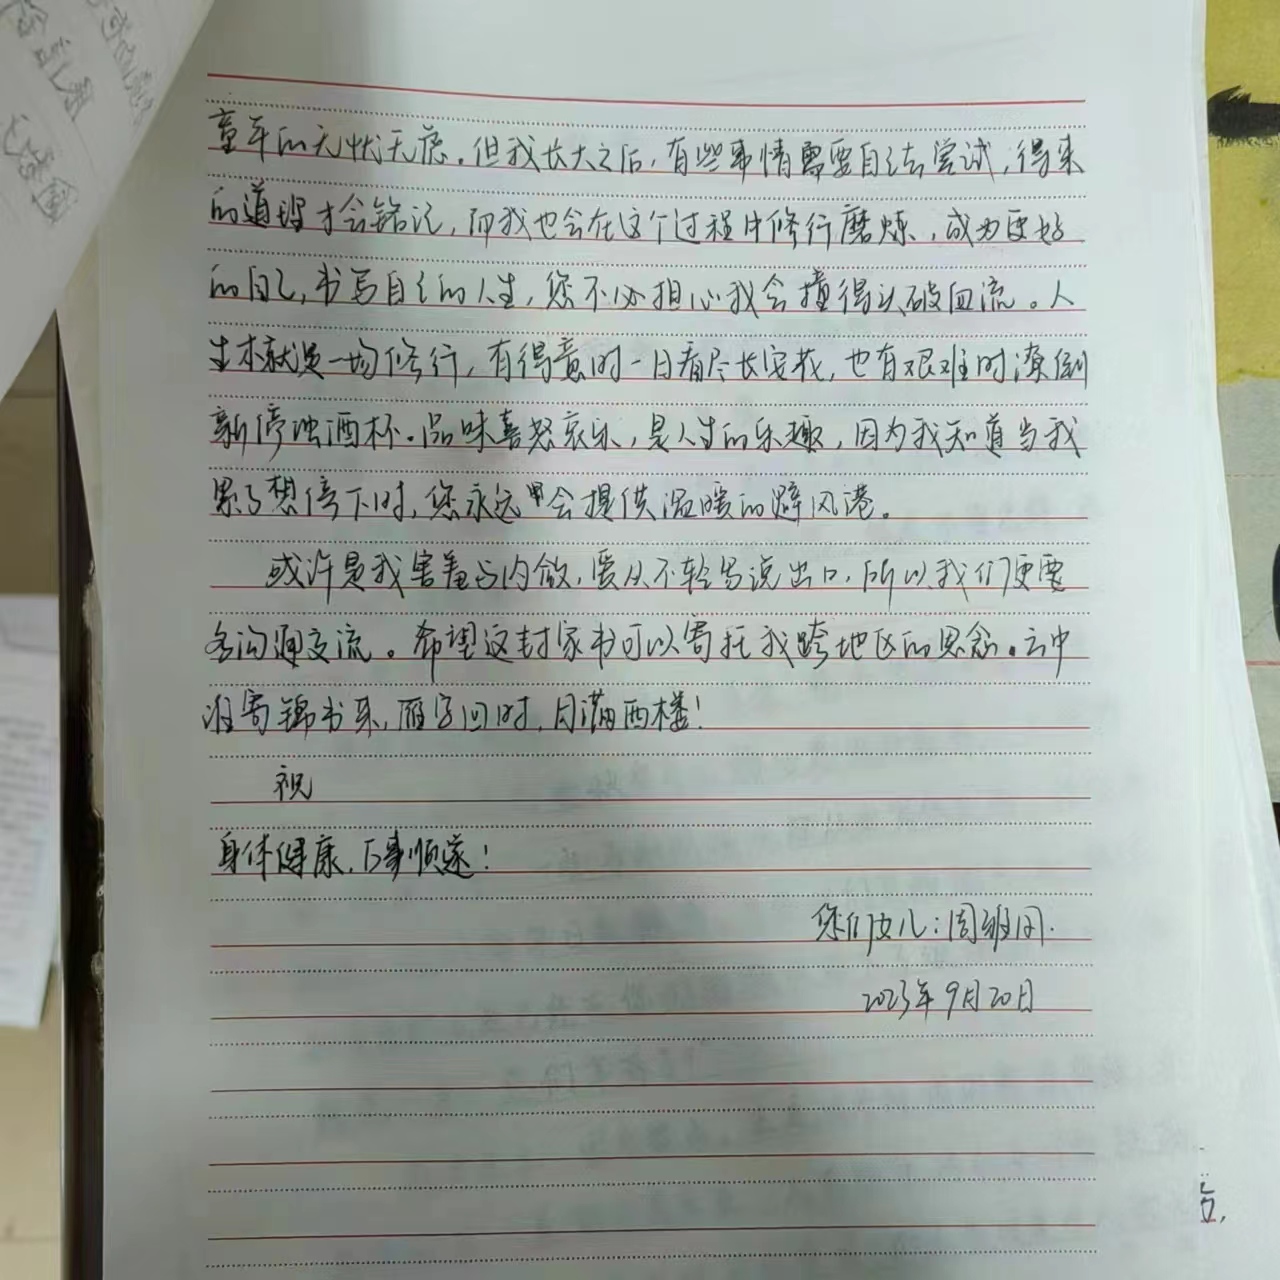 童年的无忧无虑。但我长大之后,有些事情需要自己去尝试,得来
的道理才会铭记,而我也会在这个过程中修行磨炼,成为更好
的自己,书写自己的人生,您不必担心我会撞得头破血流。人
生本就是一场修行,有得意时一日看尽长安花,也有艰难时潦倒
新停浊酒杯。品味喜怒哀乐,是人生的乐趣,因为我知道当我
累了想停下时,您永远会提供温暖的避风港。
或许是我害羞与内敛,爱从不轻易说出口,所以我们更要
多沟通交流。希望这封家书可以寄托我跨地区的思念。云中
谁寄锦书来,雁字回时,月满西楼!
祝
身体健康,万事顺遂!
您们女儿:周
2023年9月20日